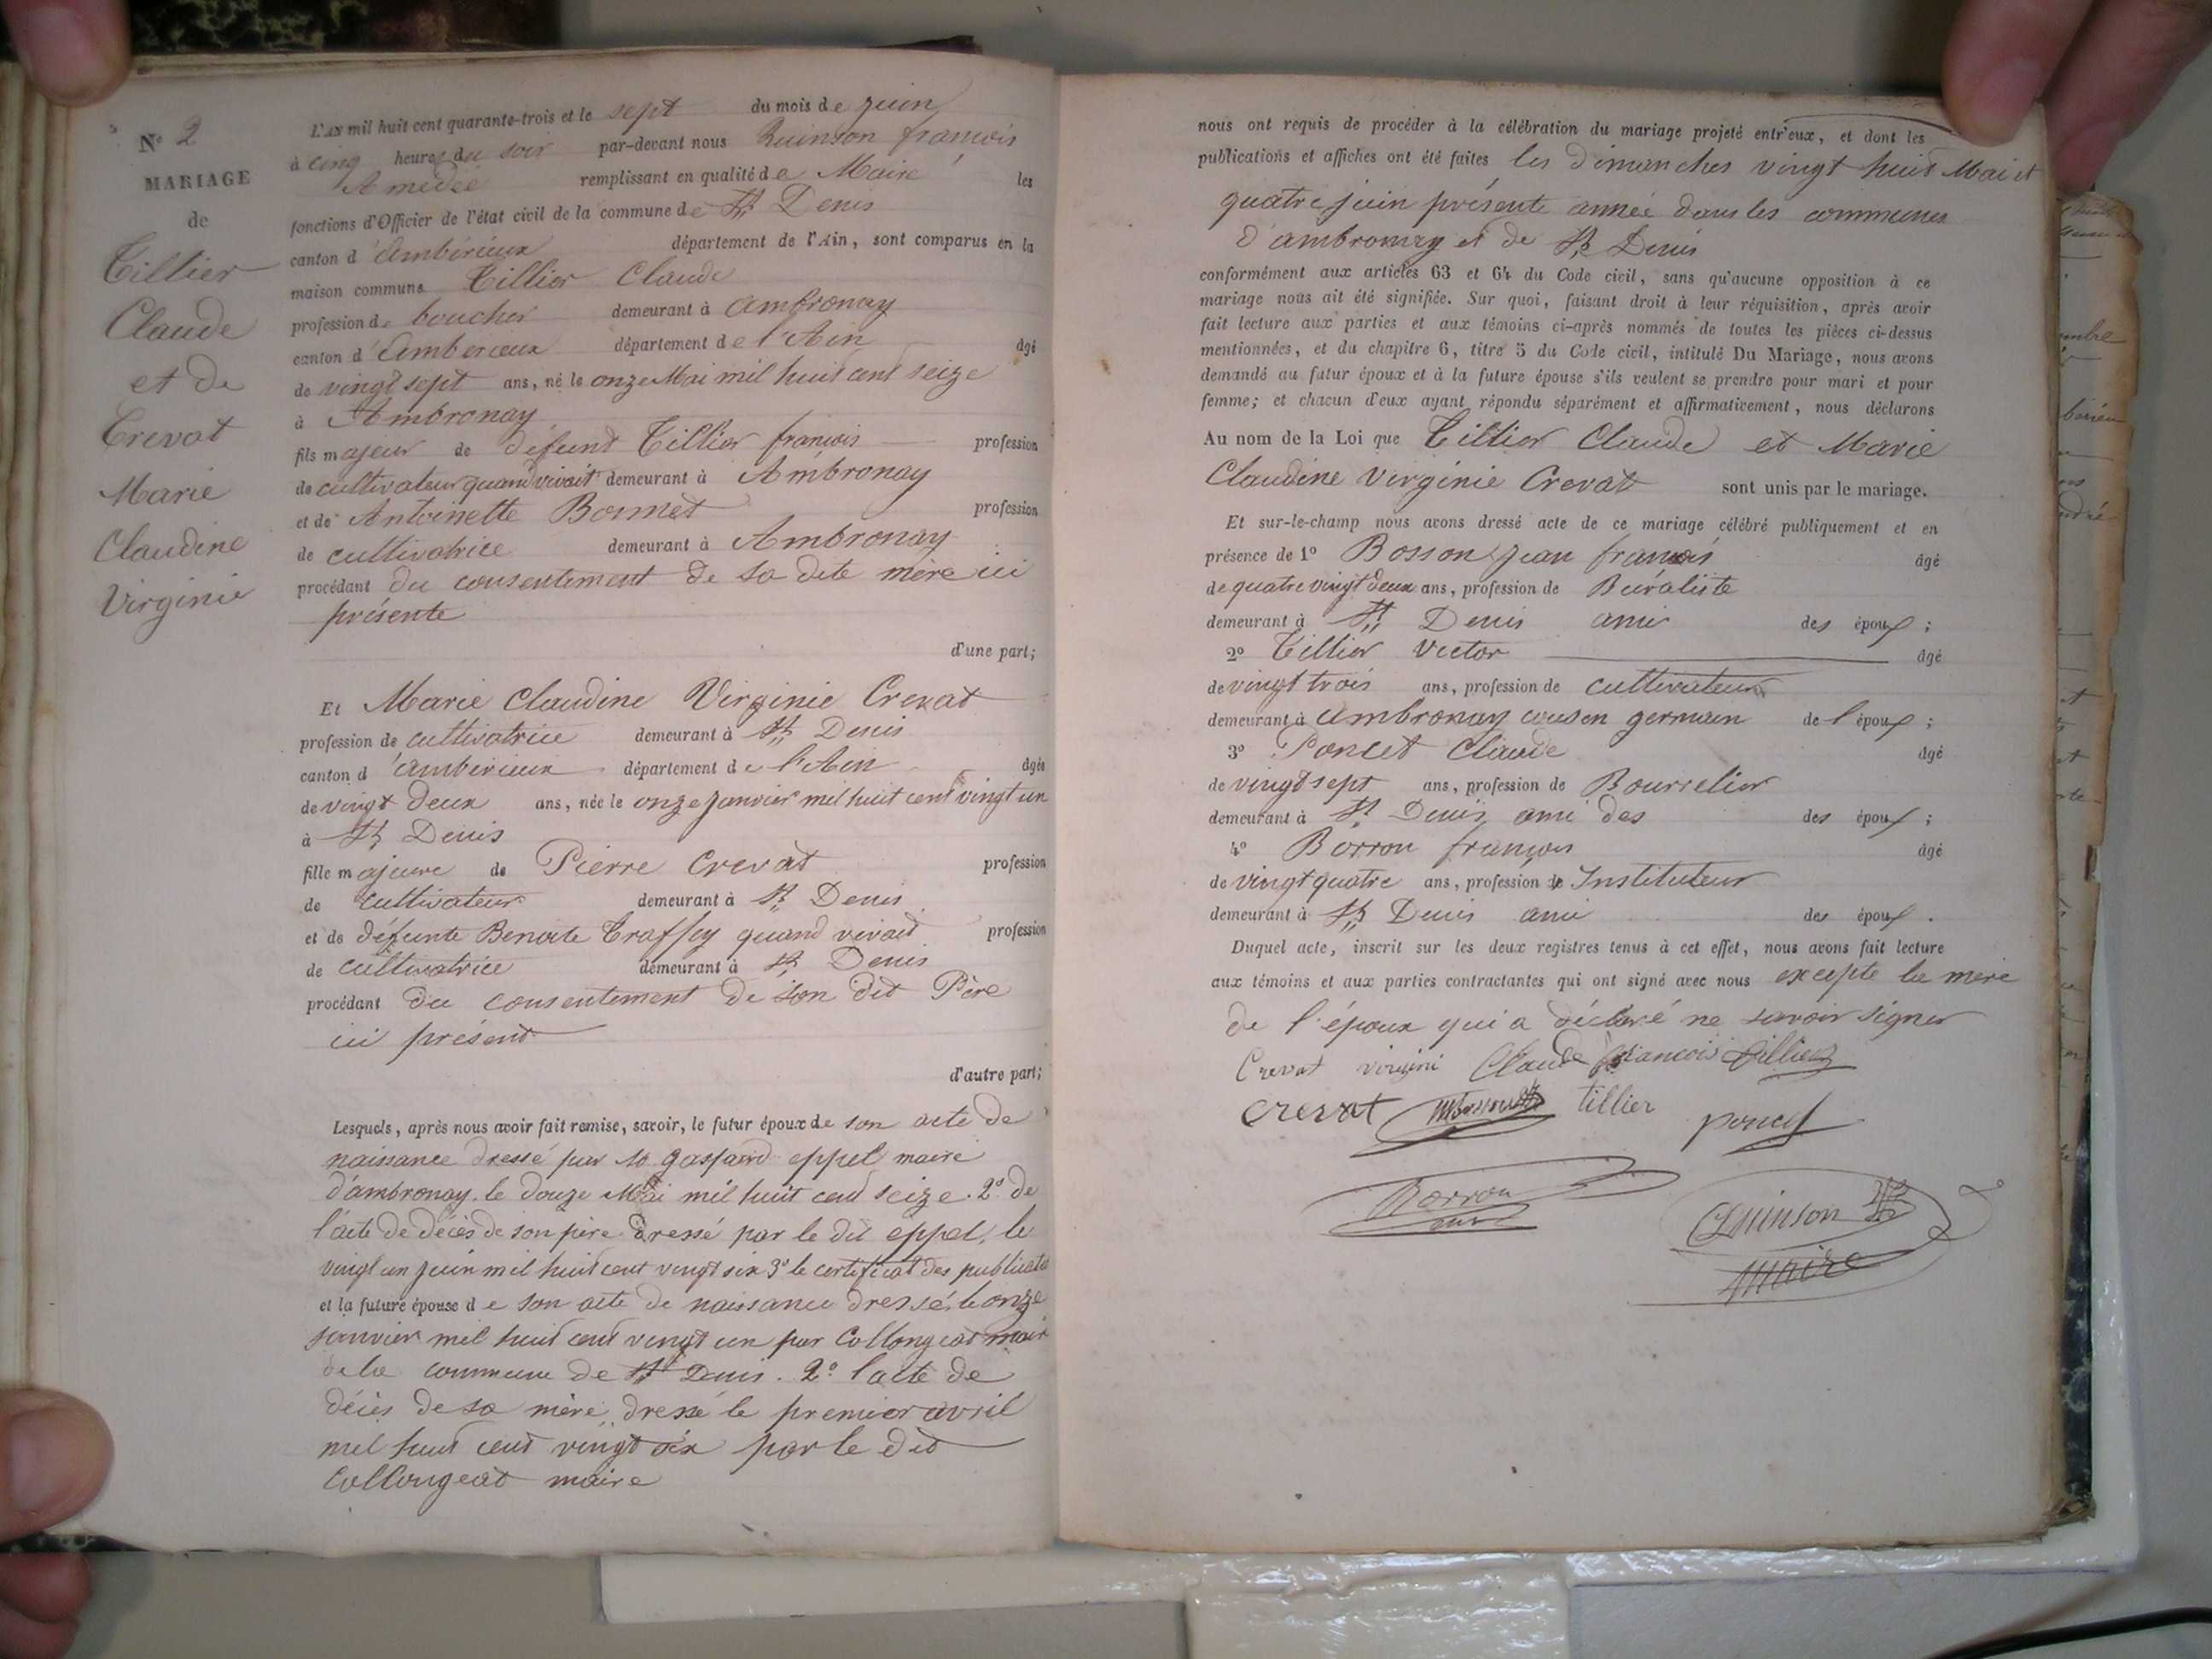 N° 2
MARIAGE
de
Tillier
Claude
et de
Crevat
Marie
Claudine
Virginie
L'An mil huit cent quarante-trois et le sept du mois de juin
à cinq heures du soir par-devant nous Quinson françois
Amédée remplissant en qualité de Maire les
fonctions d'Officier de l'état civil de la commune de St Denis
canton d'Ambérieux département de l'Ain, sont comparus en la
maison commune Tillier Claude
profession de boucher demeurant à Ambronay
canton d'Amberieux département de l'Ain âgé
de vingt sept ans, né le onze Mai mil huit cent seize
à Ambronay
fils majeur de défunt Tillier francois profession
de cultivateur quand vivait demeurant à Ambronay
et de Antoinette Bonnet profession
de cultivatrice demeurant à Ambronay
procédant du consentement de sa dite mère ici
présente
d'une part;
Et Marie Claudine Virginie Crevat
profession de cultivatrice demeurant à St Denis
canton d'ambérieux département de l'Ain âgée
de vingt deux ans, née le onze janvier mil huit cent vingt un
à St Denis
fille majeure de Pierre Crevat profession
de cultivateur demeurant à St Denis
et de défunte Benoite Traffey quand vivait profession
de cultivatrice demeurant à St Denis
procédant du consentement de son dit Père
ici présent
d'autre part;
Lesquels, après nous avoir fait remise, savoir, le futur époux de son acte de
naissance dressé par gaspard eppel maire
d'ambronay le douze Mai mil huit cent seize. 2° de
l'acte de décès de son père dressé par le dit eppel, le
vingt un juin mil huit cent vingt six 3° le certificat des publicatio
et la future épouse de son acte de naissance dressé le onze
janvier mil huit cent vingt un par Collongeat maire
de la commune de St Denis. 2° l'acte de
décès de sa mère, dressé le premier avril
mil huit cent vingt six par le dit
Collongeat maire
nous ont requis de procéder à la célébration du mariage projeté entr'eux, et dont les
publications et affiches ont été faites les dimanches vingt huit Mai et
quatre juin présente année dans les communes
d'ambronay et de St Denis
conformément aux articles 63 et 64 du Code civil, sans qu'aucune opposition à ce
mariage nous ait été signifiée. Sur quoi, faisant droit à leur réquisition, après avoir
fait lecture aux parties et aux témoins ci-après nommés de toutes les pièces ci-dessus
mentionnées, et du chapitre 6, titre 5 du Code civil, intitulé Du Mariage, nous avons
demandé au futur époux et à la future épouse s'ils veulent se prendre pour mari et pour
femme; et chacun d'eux ayant répondu séparément et affirmativement, nous déclarons
Au nom de la Loi que Tillier Claude et Marie
Claudine Virginie Crevat sont unis par le mariage.
Et sur-le-champ nous avons dressé acte de ce mariage célébré publiquement et en
présence de 1° Bosson jean françois âgé
de quatre vingt deux ans, profession de Buraliste
demeurant à St Denis ami des époux;
2° Tillier Victor âgé
de vingt trois ans, profession de cultivateur
demeurant à ambronay cousin germain de l'époux;
3° Poncet Claude âgé
de vingt sept ans, profession de Bourrelier
demeurant à St Denis ami des des époux;
4° Borron françois âgé
de vingt quatre ans, profession de Instituteur
demeurant à St Denis ami des époux.
Duquel acte, inscrit sur les deux registres tenus à cet effet, nous avons fait lecture
aux témoins et aux parties contractantes qui ont signé avec nous excepté la mère
de l'époux qui a déclaré ne savoir signer
Crevat virgini Claude francois tillier
crevat tillier poncet
Borron
Quinson
Maire